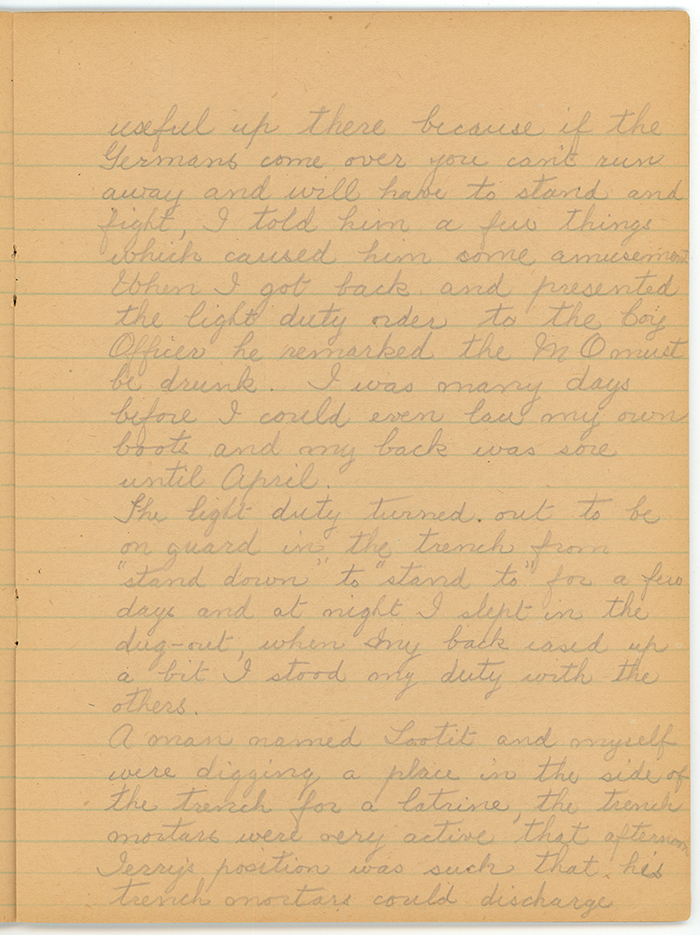 useful up there because if the
Germans come over you can't run
away and will have to stand and
fight, I told him a few things
which caused him some amusement
When I got back and presented
the light duty order to the Coy
Officer he remarked the M O must
be drunk. I was many days
before I could even lace my own
boots and my back was sore
until April.
The light duty turned out to be
on guard in the trench from
"stand down" to "stand to" for a few
days and at night I slept in the
dug-out, when my back eased up
a bit I stood my duty with the
others.
A man named Lootit and myself
were digging a place in the side of
the trench for a latrine, the trench
mortars were very active that afternoon
Jerry's position was such that his
trench mortars could discharge